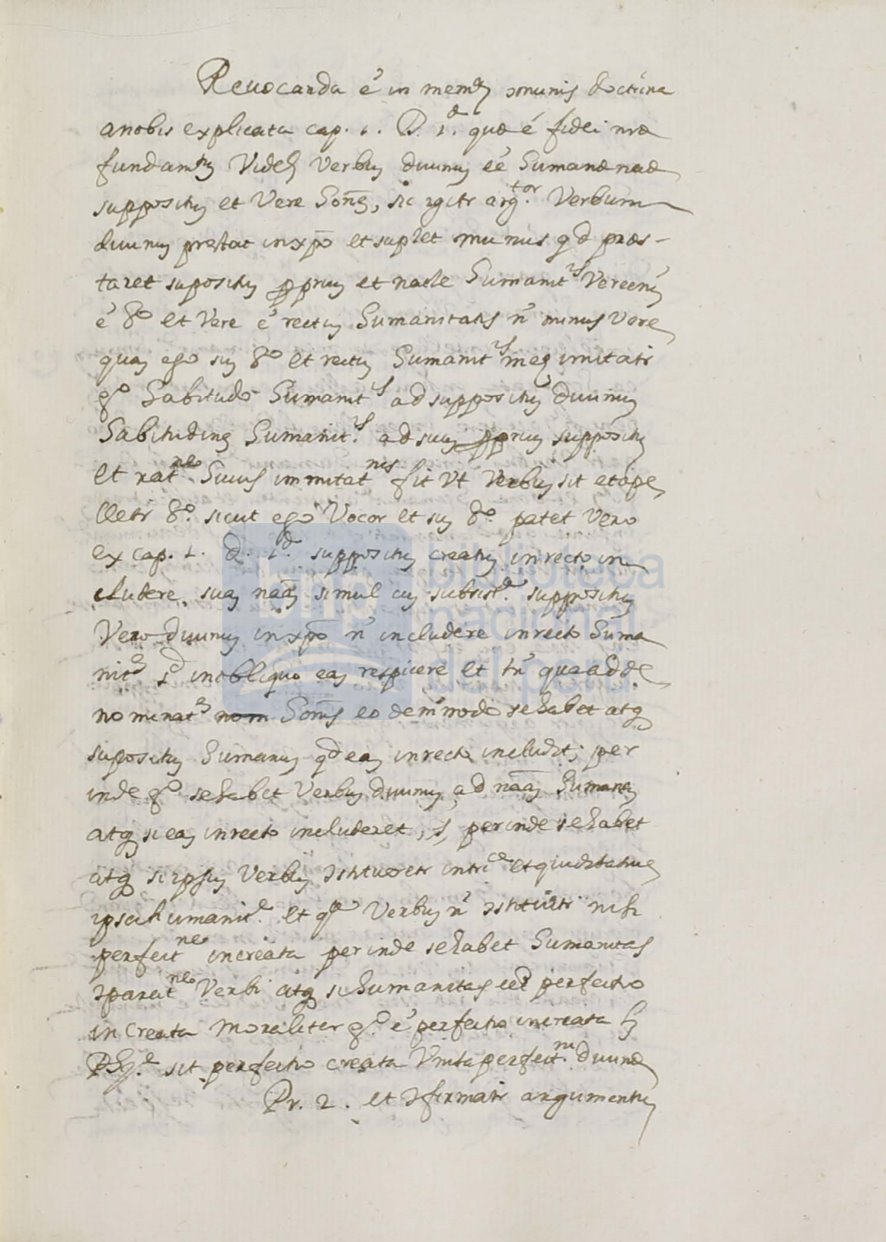 Reuocanda ẽ in mem omunis doctrina
anobis explicata cap. 1. D. 1.ª quæ ẽ fidei nræ
fundam Videl Verbũ diuinũ eẽ humanæ naæ
suppositũ et Vere hom̃, sic igitr arg.tor Verbum
diuinũ prestat inxpõ et suplet munus qd præs-
taret supositũ pprium et nãale humanit.s Vere enĩ
ẽ ho et Vere ẽ rectũ humanitatis ñ minus Vere
quã ego sũ ho et rectũ humanit.s meæ imitatr
go habitudo humanit.s ad suppositũ diuinũ
habitudinẽ humanit.s ad suũ pprium suppositũ
et rat.ne huius immitat.nis fit Vt Verbũ sit et ape
lletr ho. sicut ego Vocor et sũ ho. patet Vero
ex cap. 1. d. 1.ª suppositũ creatũ inrecto in
cludere suã naã simul cũ subsist.ª suppositũ
Vero diuinũ inxpõ ñ includere inrecto huma
nit.e sd inobliquo eã respicere et tñ quaad de
nominat.m hom̃s eodem modo sehabet atq
supositũ humanũ qd eã inrecto includit; per
inde go sehabet Verbũ diuinũ ad naã humanã
atq si eã inrecto includeret, perinde sehabet
atq si ipsũ Verbũ ostitueretr et quiditatiue
ipsa humanit.e et qa Verbũ ñ ostituitr nisi
perfect.ne increata perinde sehabet humanitas
oparat.ne Verbi atq si humanitas eet perfectio
increata moraliter go ẽ perfectio increata
sit perfectio creata Vnita perfect.ni diuinæ
Pr. 2. et ofirmatr argumentũ
biblioteca
nacional
del perú